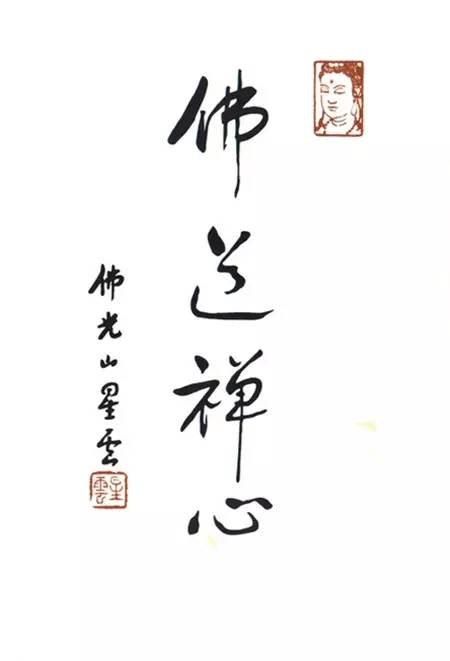 佛道禅心
佛光山星雲
星雲